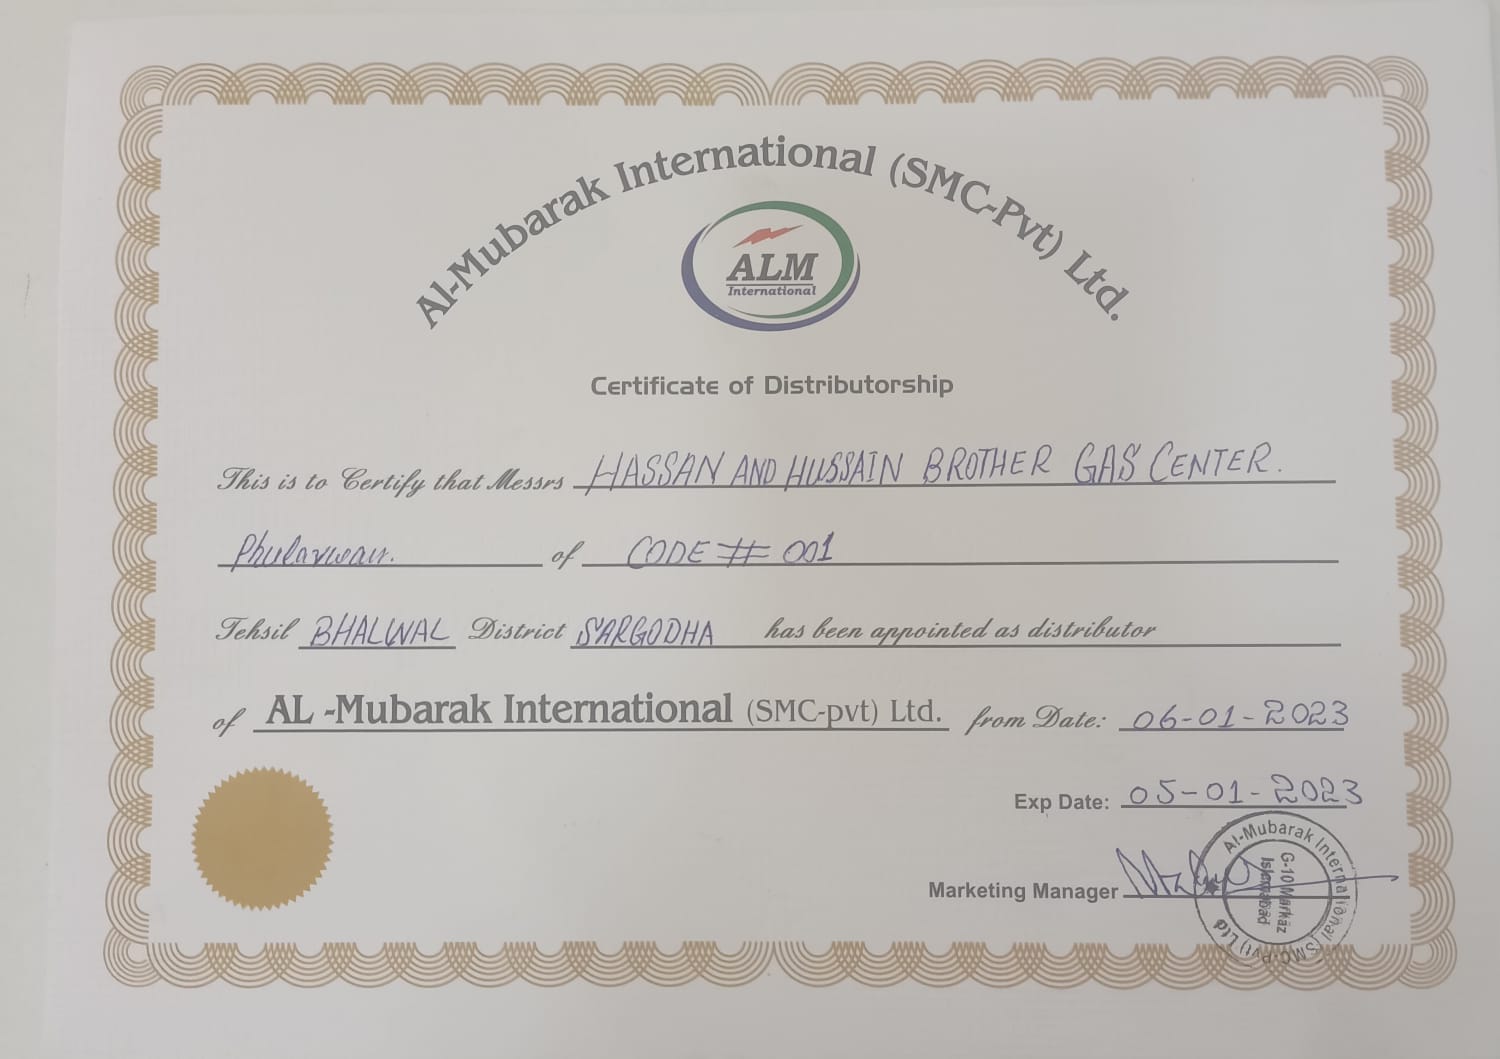 Al-Mubarak International (SMC-Pvt) Ltd.
ALM
International
Certificate of Distributorship
This is to Certify that Messrs HASSAN AND HUSSAIN BROTHER GAS CENTER.
Phularwan. of CODE # 001
Tehsil BHALWAL District SARGODHA has been appointed as distributor
of AL -Mubarak International (SMC-pvt) Ltd. from Date: 06-01-2023
Exp Date: 05-01-2023
Marketing Manager
Al-Mubarak International (SMC-Pvt) Ltd
G-10 Markaz
Islamabad